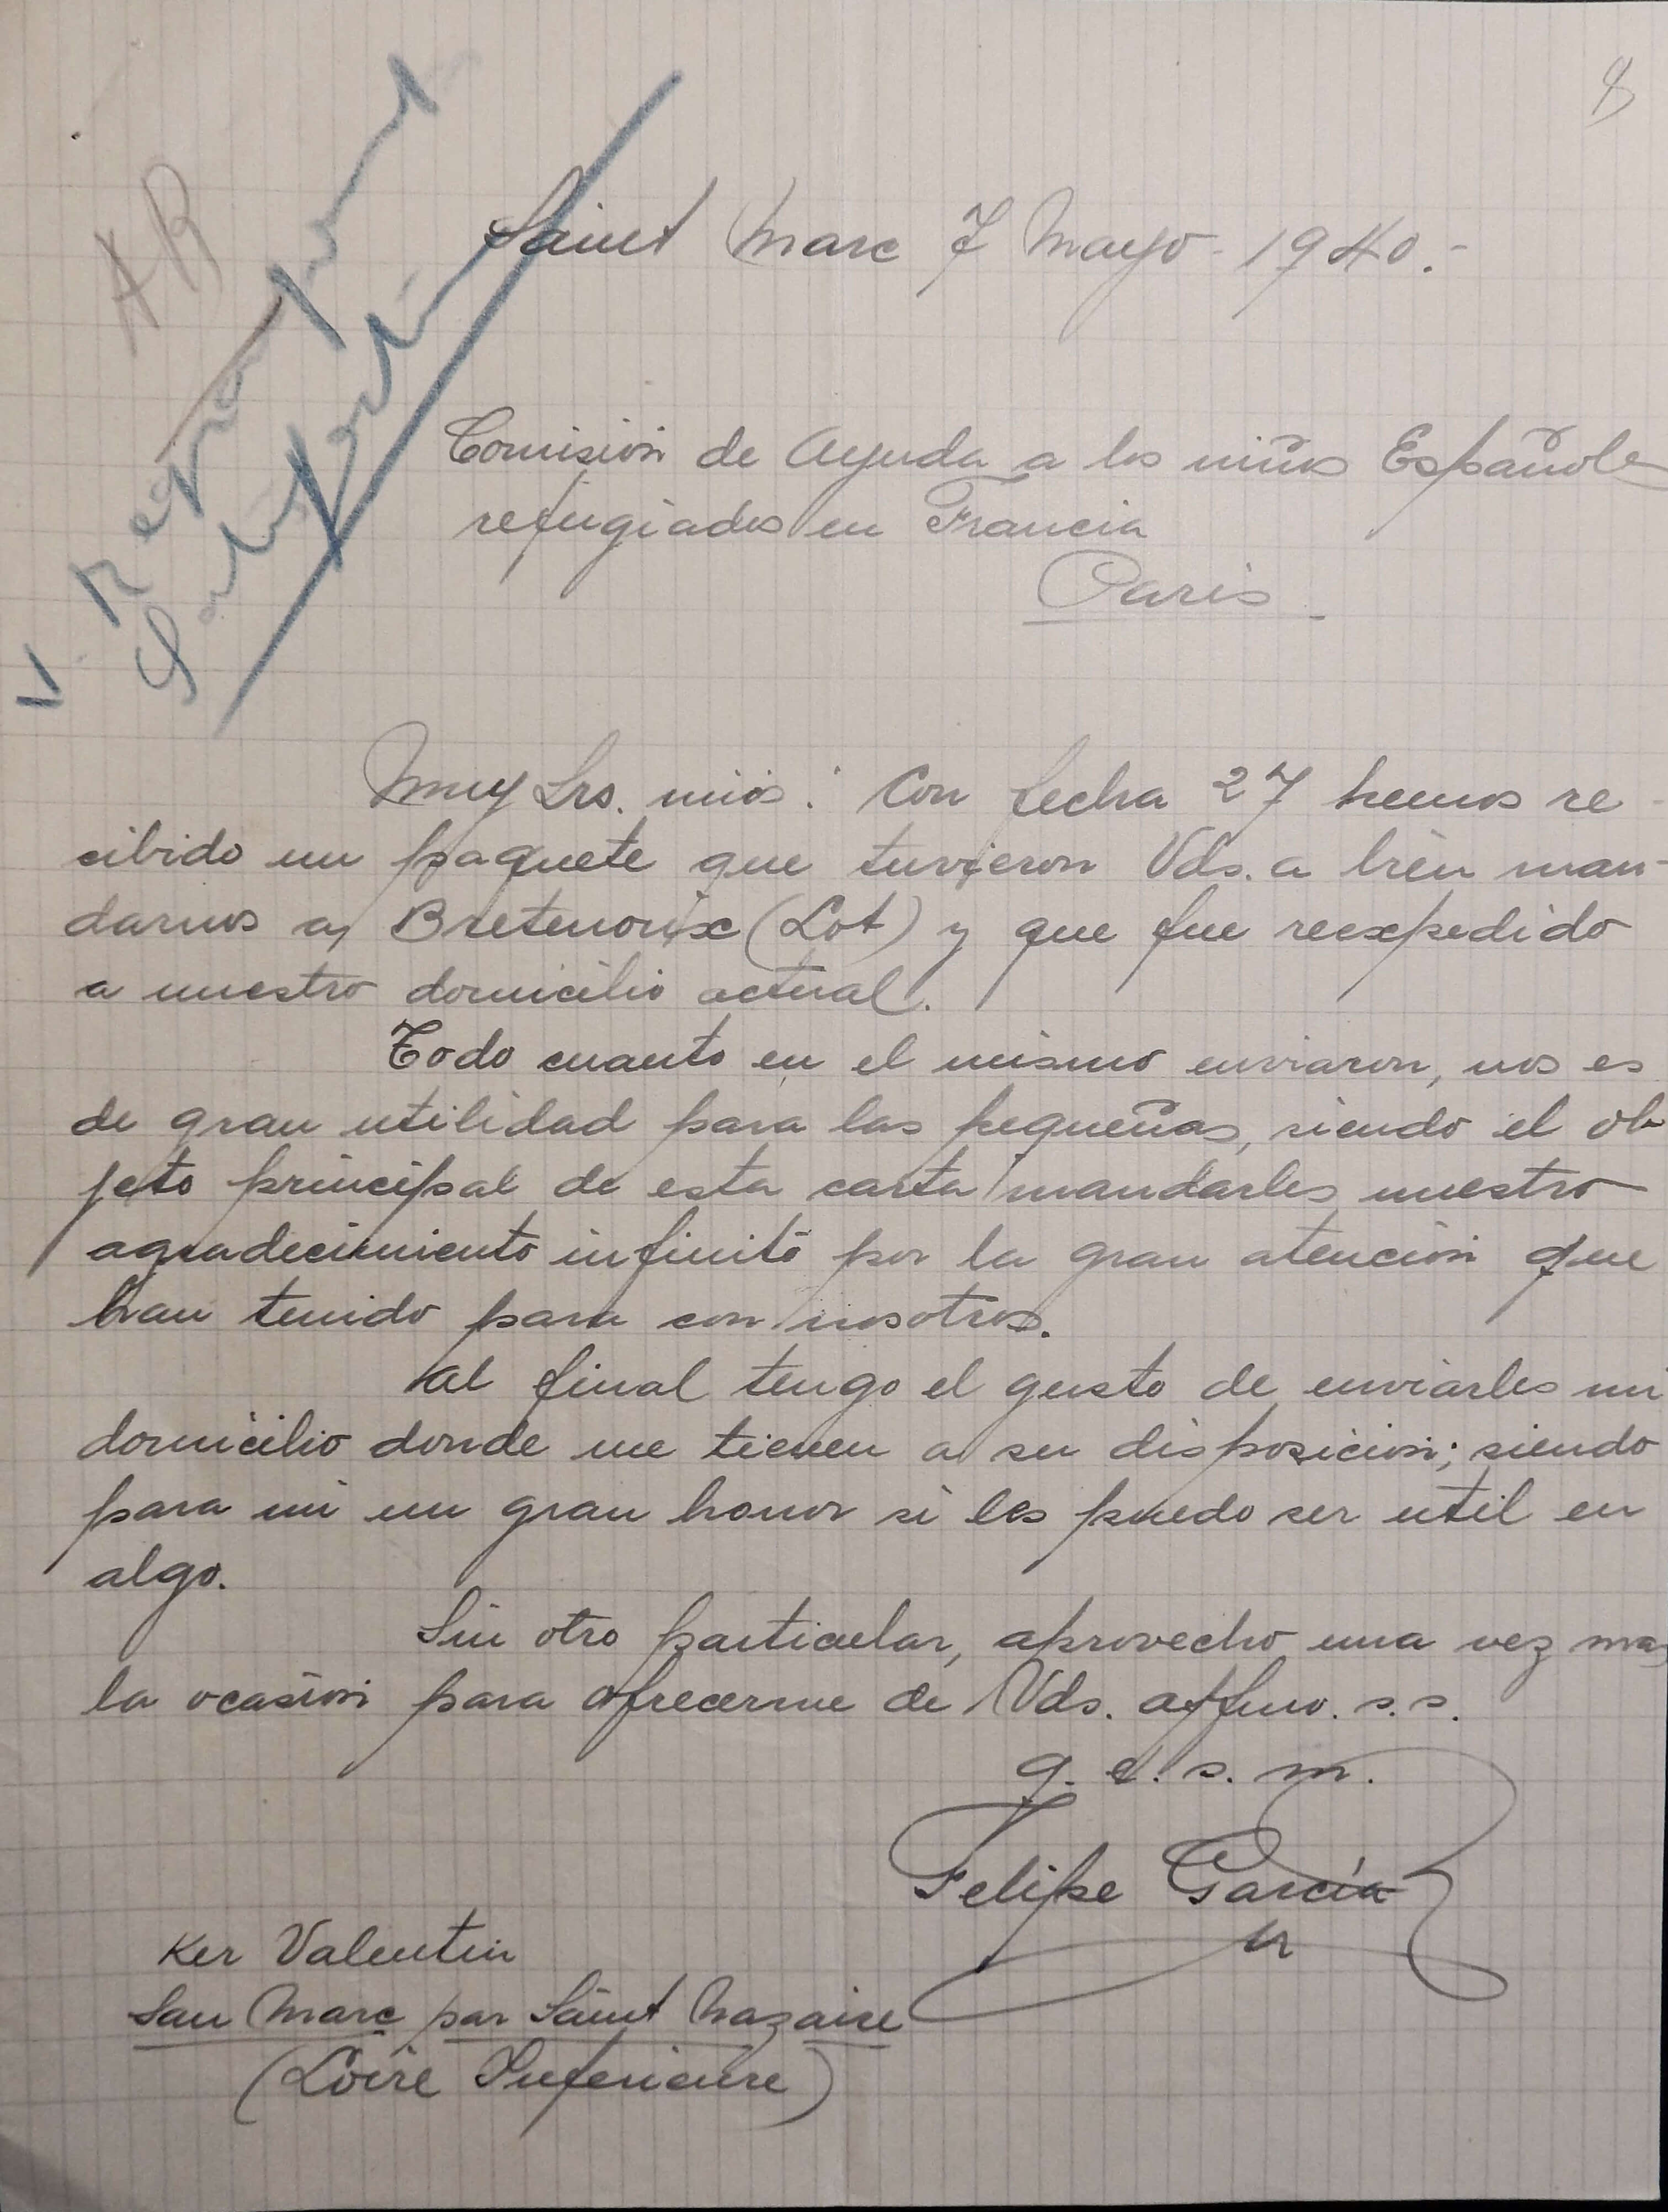 8
AR
Saint Marc 7 Mayo - 1940.-
Comisión de Ayuda a los niños Españoles
refugiados en Francia
Paris
Muy Srs. mios: Con fecha 27 hemos re-
cibido un paquete que tuvieron Vds. a bien man-
darnos a Bretenoux (Lot) y que fue reexpedido
a nuestro domicilio actual.
Todo cuanto en el mismo enviaron, nos es
de gran utilidad para las pequeñas, siendo el ob
jeto principal de esta carta mandarles nuestro
agradecimiento infinito por la gran atención que
han tenido para con nosotros.
Al final tengo el gusto de enviarles mi
domicilio donde me tienen a su disposición; siendo
para mi un gran honor si les puedo ser util en
algo.
Sin otro particular, aprovecho una vez mas
la ocasión para ofrecerme de Vds. affmo. s.s.
q. e. s. m.
Felipe García
Ker Valentin
San Marc par Saint Nazaire
(Loire Inferieure)